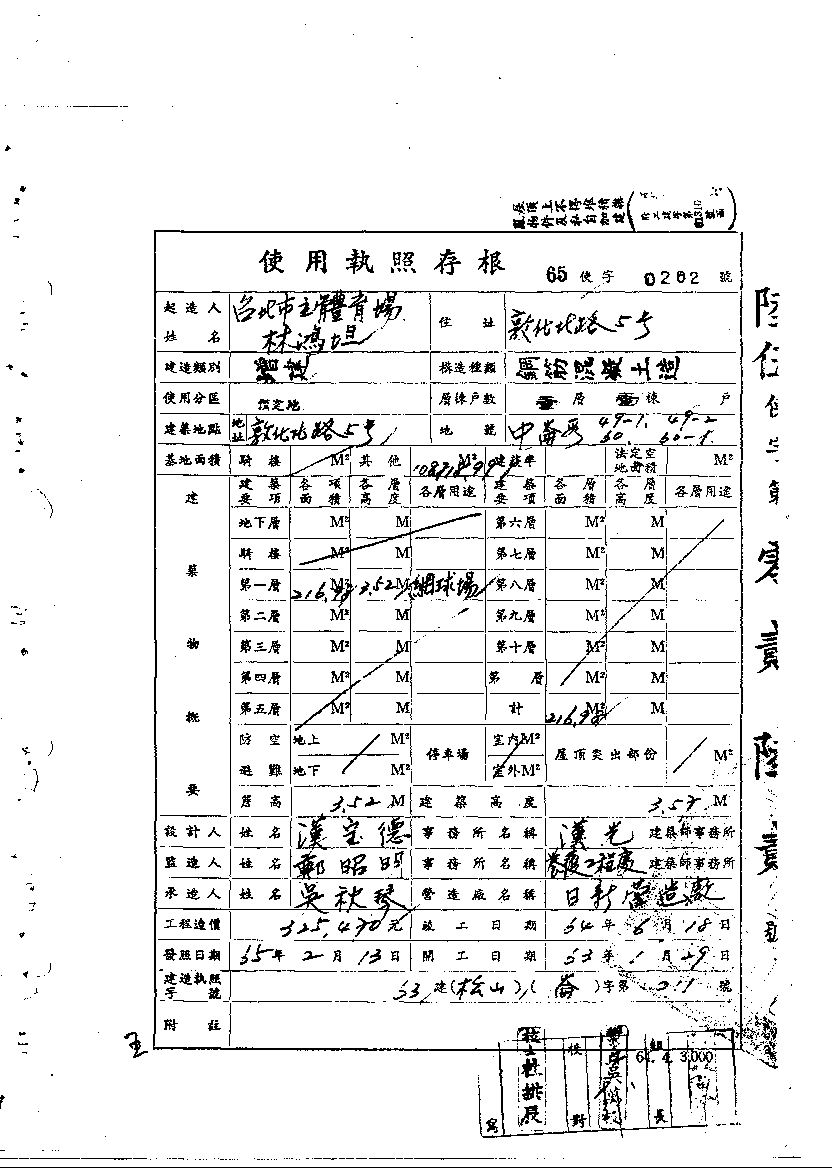 屋頂上不得堆積雜
物件及私自加建
使用執照存根
65 使字 0262 號
起造人姓名 台北市立體育場 林鴻坦 住址 敦化北路5号
建造類別 增建 構造種類 鋼筋混凝土造
使用分區 預定地 層棟户數 壹層壹棟 户
建築地點 地址 敦化北路5号 地號 中崙段 49-1. 49-2 60. 60-1.
基地面積 騎樓 M² 其他 M² 建蔽率 法定空地面積 M²
建築物概要
建築要項 各項面積 各層高度 各層用途 建築要項 各層面積 各層高度 各層用途
地下層 M² M 第六層 M² M
騎樓 M² M 第七層 M² M
第一層 M² 3.52 M 網球場 第八層 M² M
第二層 M² M 第九層 M² M
第三層 M² M 第十層 M² M
第四層 M² M 第 層 M² M
第五層 M² M 計 M² M
防空避難 地上 M² 停車場 室內 M² 屋頂突出部份 M²
地下 M² 室外 M²
簷高 3.52 M 建築高度 M
設計人 姓名 漢宝德 事務所名稱 漢光 建築師事務所
監造人 姓名 鄭昭明 事務所名稱 建築師事務所
承造人 姓名 吳秋琴 營造廠名稱 日新營造廠
工程造價 325,470元 竣工日期 64年6月18日
發照日期 65年2月13日 開工日期 63年1月29日
建造執照字號 63 建(松山)(崙)字第 211 號
附註
64. 4. 3,000
校對
組長
陸伍使字第零貳陸貳號